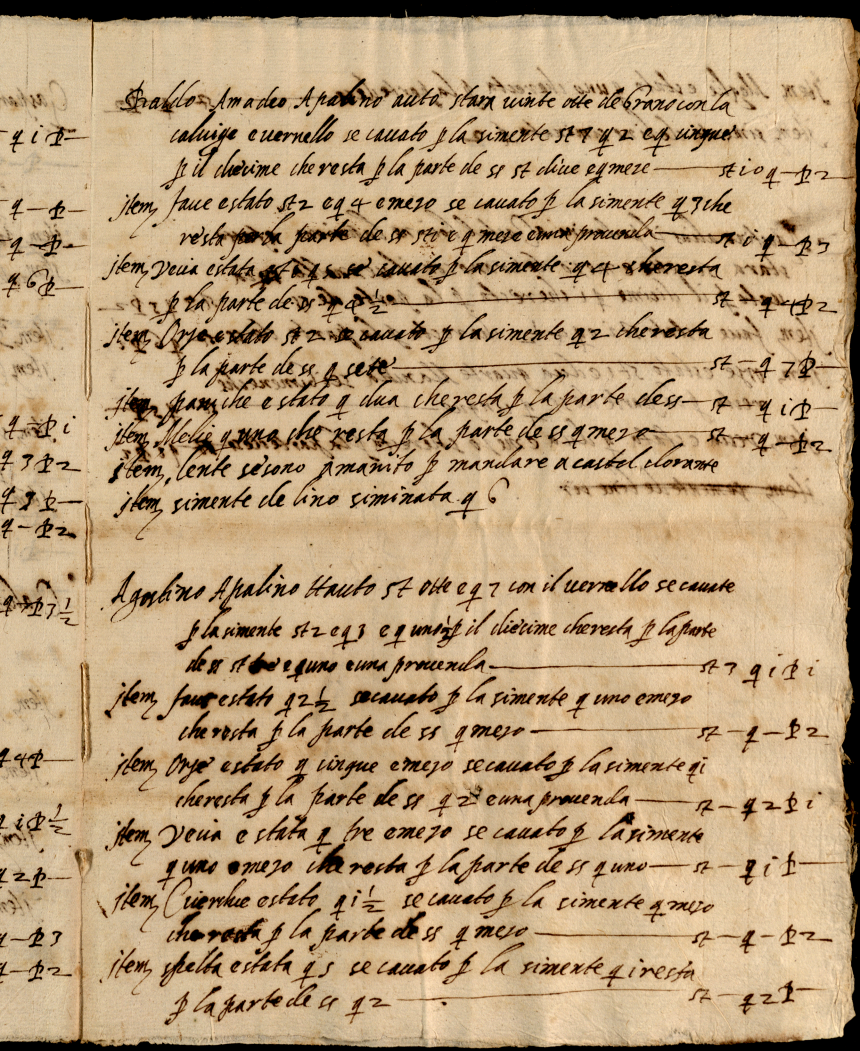 q i p—
q — p—
q — p—
q 6 p—
q — p i
q 3 p 2
q 3 p —
q — p 2
q p 3 ½
q 4 p —
q i p ½
q 2 p —
q — p 3
q — p 2
Baldo Amadeo Apalino auto stara vinte otte de Grano con la
calviga e vernello se cavato p la simente st 7 q 2 e q cinque
p il diecime che resta p la parte de ss st diece e q meze — st i0 q — p 2
jtem fave e stato st 2 e q 4 e mezo se cavato p la simente q 3 che
resta p la parte de ss st i e q meze e una provenda — st i q — p 3
jtem Vecia e stata se cavato p la simente q 4 che resta
p la parte de ss q 4 ½ — st — q 4 p 2
jtem Orze e stato st 2 se cavato p la simente q 2 che resta
p la parte de ss q sete — st — q 7 p —
jtem paniche e stato q dua che resta p la parte de ss — st — q i p —
jtem Melie q uno che resta p la parte de ss q mezo — st — q — p 2
jtem lente se sono amanito p mandare a castel
jtem simente de lino siminata q 6
Agostino Apalino Hauto st otte e q 7 con il vernello se cavate
p la simente st 2 e q 3 e q uno p il diecime che resta p la parte
de ss st tre e q uno e una provenda — st 3 q i p i
jtem fave e stato q 2 ½ se cavato p la simente q uno e mezo
che resta p la parte de ss q mezo — st — q — p 2
jtem Orze e stato q cinque e mezo se cavato p la simente q i
che resta p la parte de ss q 2 e una provenda — st — q 2 p i
jtem Vecia e stata q tre e mezo se cavato p la simente
q uno e mezo che resta p la parte de ss q uno — st — q i p —
jtem Cicerchie e stato q i ½ se cavato p la simente q mezo
che resta p la parte de ss q mezo — st — q — p 2
jtem spelta e stata q 5 se cavato p la simente q i resta
p la parte de ss q 2 — st — q 2 p —